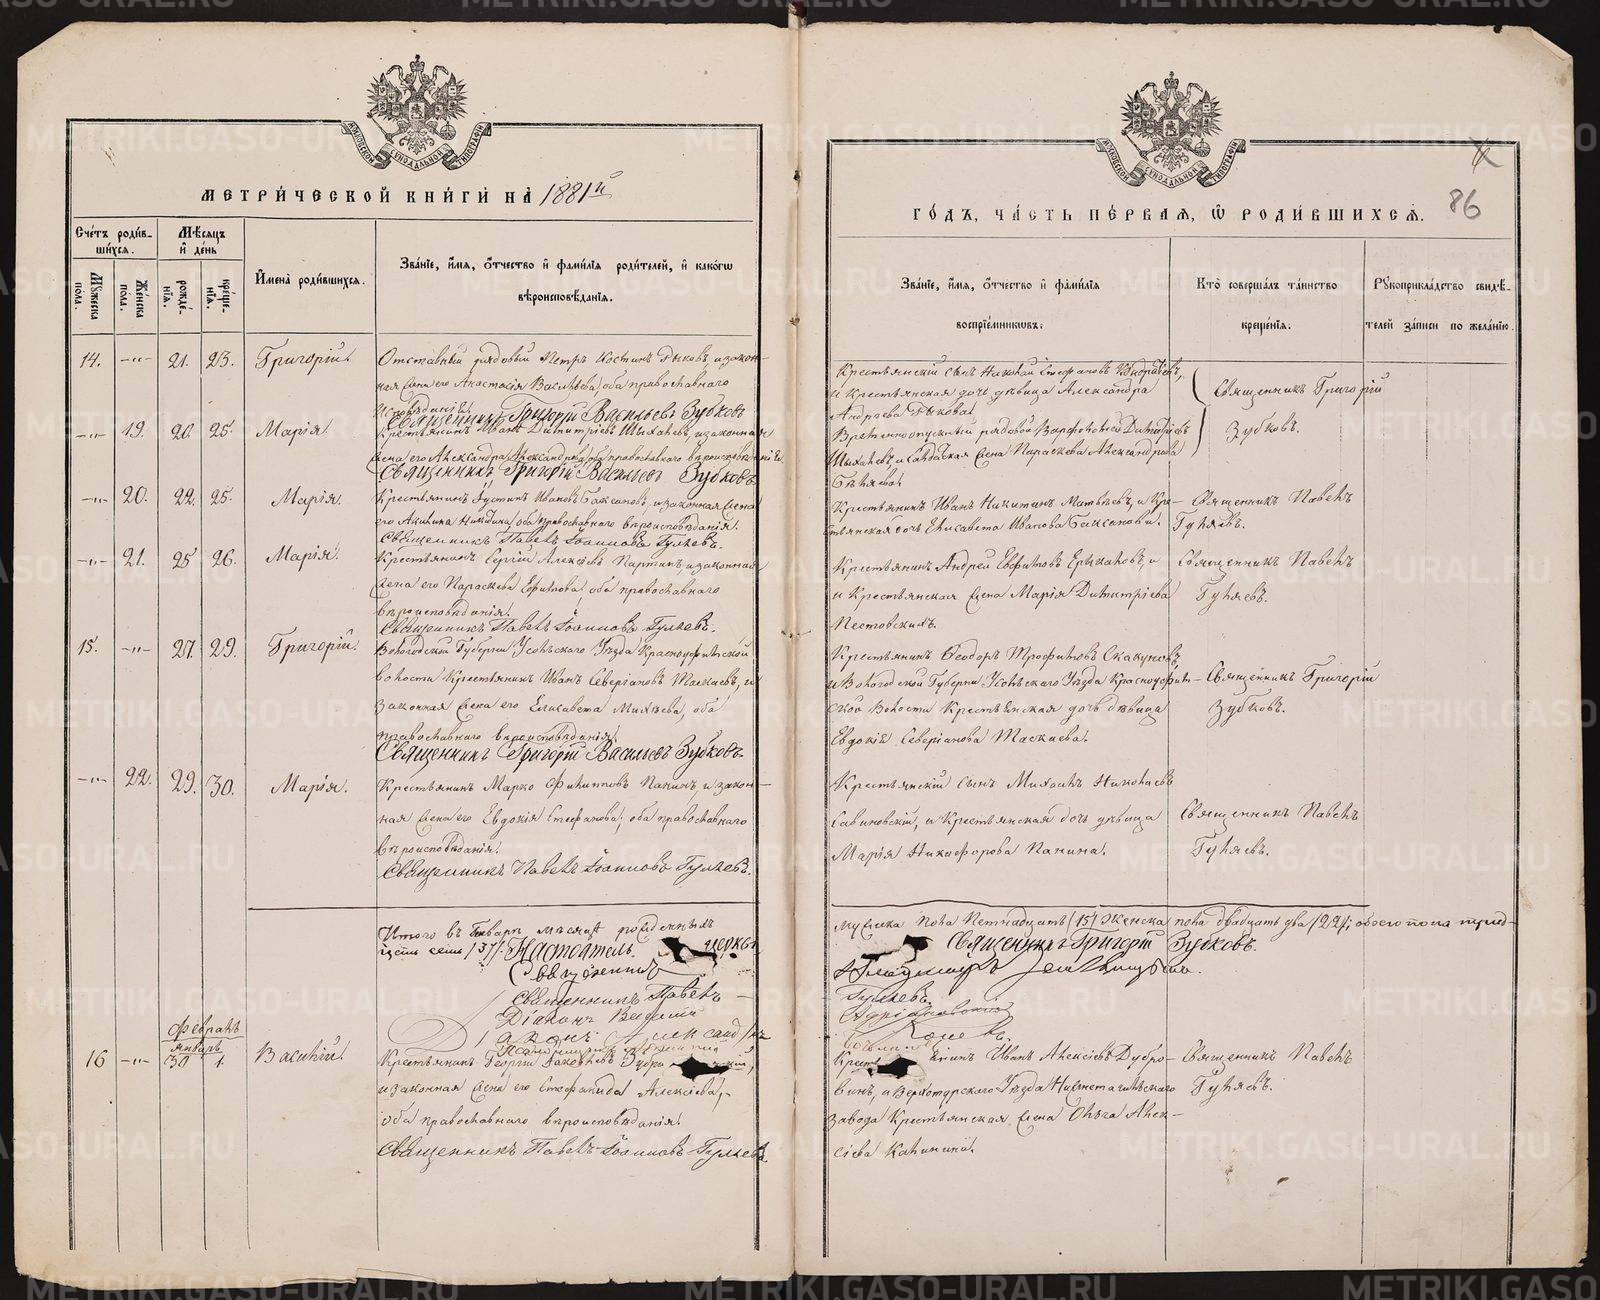 МЕТРИ́ЧЕСКОЙ КНИ́ГИ НА 1881й
Сче́тъ роди́вшихся.
Мѣ́сяцъ и де́нь
Му́жеска пола.
Же́нска пола.
рожде́нїя.
креще́нїя.
И҆мена̀ роди́вшихся.
Зва́нїе, и҆́мя, ѻ҆́тчество и҆ фами́лїя роди́телей, и҆ како́гѡ
вѣроисповѣ́данїя.
14. —"— 21. 23. Григорій.
Отставный рядовой Петръ Костинъ Рыковъ, и закон-
ная жена его Анастасія Васильева, оба православнаго
исповѣданія.
Священникъ Григорій Васильевъ Зубковъ
—"— 19. 20. 25. Марія
Крестьянинъ Иванъ Димитріевъ Шыхаевъ, и законная
жена его Александра Александрова, оба православнаго вѣроисповѣданія.
Священникъ Григорій Васильевъ Зубковъ
—"— 20. 22. 25. Марія.
Крестьянинъ Іустинъ Ивановъ Баксановъ, и законная жена
его Акилина Никитина, оба православнаго вѣроисповѣданія.
Священникъ Павелъ Іоанновъ Гуляевъ.
—"— 21. 25 26. Марія.
Крестьянинъ Сергій Алексѣевъ Партинъ, и законная
жена его Параскева Ефимова, оба православнаго
вѣроисповѣданія.
Священникъ Павелъ Іоанновъ Гуляевъ.
15. —"— 27. 29. Григорій.
Вологодской Губерніи Усольскаго Уѣзда
волости Крестьянинъ Иванъ Северіановъ Таскаевъ, и
законная жена его Елисавета Михѣева, оба
православнаго вѣроисповѣданія.
Священникъ Григорій Васильевъ Зубковъ.
—"— 22. 29. 30. Марія.
Крестьянинъ Марко Филипповъ Панинъ, и закон-
ная жена его Евдокія Стефанова, оба православнаго
вѣроисповѣданія.
Священникъ Павелъ Іоанновъ Гуляевъ.
Итого въ Январѣ мѣсяцѣ рожденныхъ
цать семь /37/. Настоятель церкви
Священникъ
Священникъ Павелъ
Діаконъ
Февраль
Январь
16 —"— 30 1. Василій.
Крестьянинъ Георгій Іаковлевъ
и законная жена его Стефанида Алексѣева,
оба православнаго вѣроисповѣданія.
Священникъ Павелъ Іоанновъ Гуляевъ
86
ГО́ДЪ, ЧА́СТЬ ПЕ́РВАЯ, Ѡ҆ РОДИ́ВШИХСЯ.
Зва́нїе, и҆́мя, ѻ҆́тчество и҆ фами́лїя
воспрїе́мникѡвъ.
Кто̀ соверша́лъ та́инство
креще́нїя.
Рꙋкоприкла́дство свидѣ́-
телей за́писи по жела́нїю.
Крестьянскій сынъ Николай Стефановъ Кондратьевъ,
и крестьянская дочь дѣвица Александра
Андреева Рыкова.
Священникъ Григорій
Зубковъ.
Временноотпускный рядовой Варфоломей Димитріевъ
Шыхаевъ, и солдатская жена Параскева Александрова
Бѣляева.
Крестьянинъ Иванъ Никитинъ Матвѣевъ, и Кре-
стьянская дочь Елисавета Иванова Баксанова.
Священникъ Павелъ
Гуляевъ.
Крестьянинъ Андрей Евфимовъ Ерыкаловъ, и
и Крестьянская жена Марія Димитріева
Пестовскихъ.
Священникъ Павелъ
Гуляевъ.
Крестьянинъ Ѳеодоръ Трофимовъ Скакуновъ,
и Вологодской Губерніи Усольскаго Уѣзда
ской Волости Крестьянская дочь дѣвица
Евдокія Северіанова Таскаева.
Священникъ Григорій
Зубковъ.
Крестьянскій сынъ Михаилъ Николаевъ
Савиновскій, и Крестьянская дочь дѣвица
Марія Никифорова Панина.
Священникъ Павелъ
Гуляевъ.
мужеска пола Пятнадцать /15/ Женска пола двадцать два /22/, обоего пола трид-
Священникъ Григорій Зубковъ.
Гуляевъ.
Крест янинъ Иванъ Алексѣевъ Дубро-
винъ, и Верхотурскаго Уѣзда Нижнетагильскаго
завода Крестьянская жена Ольга Алек-
сіева Калинина.
Священникъ Павелъ
Гуляевъ.
METRIKI.GASO-URAL.RU